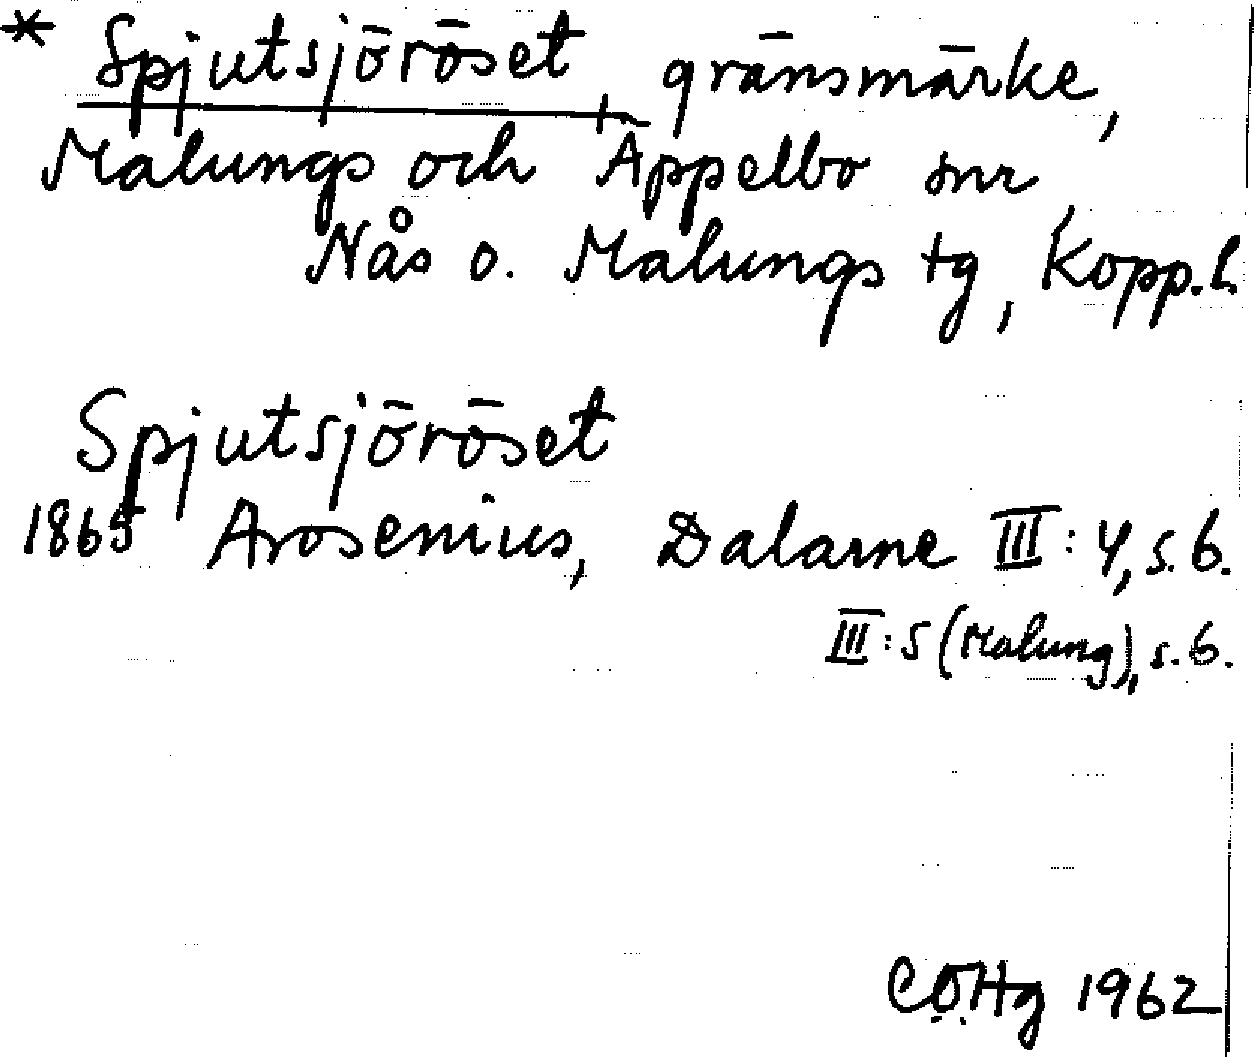 * Spjutsjöröset, gränsmärke,
Malungs och Äppelbo snr,
Nås o. Malungs tg, Kopp.l.
Spjutsjöröset
1865 Arosenius, Dalarne III:4, s. 6.
III:5 (Malung), s. 6.
CÖHg 1962